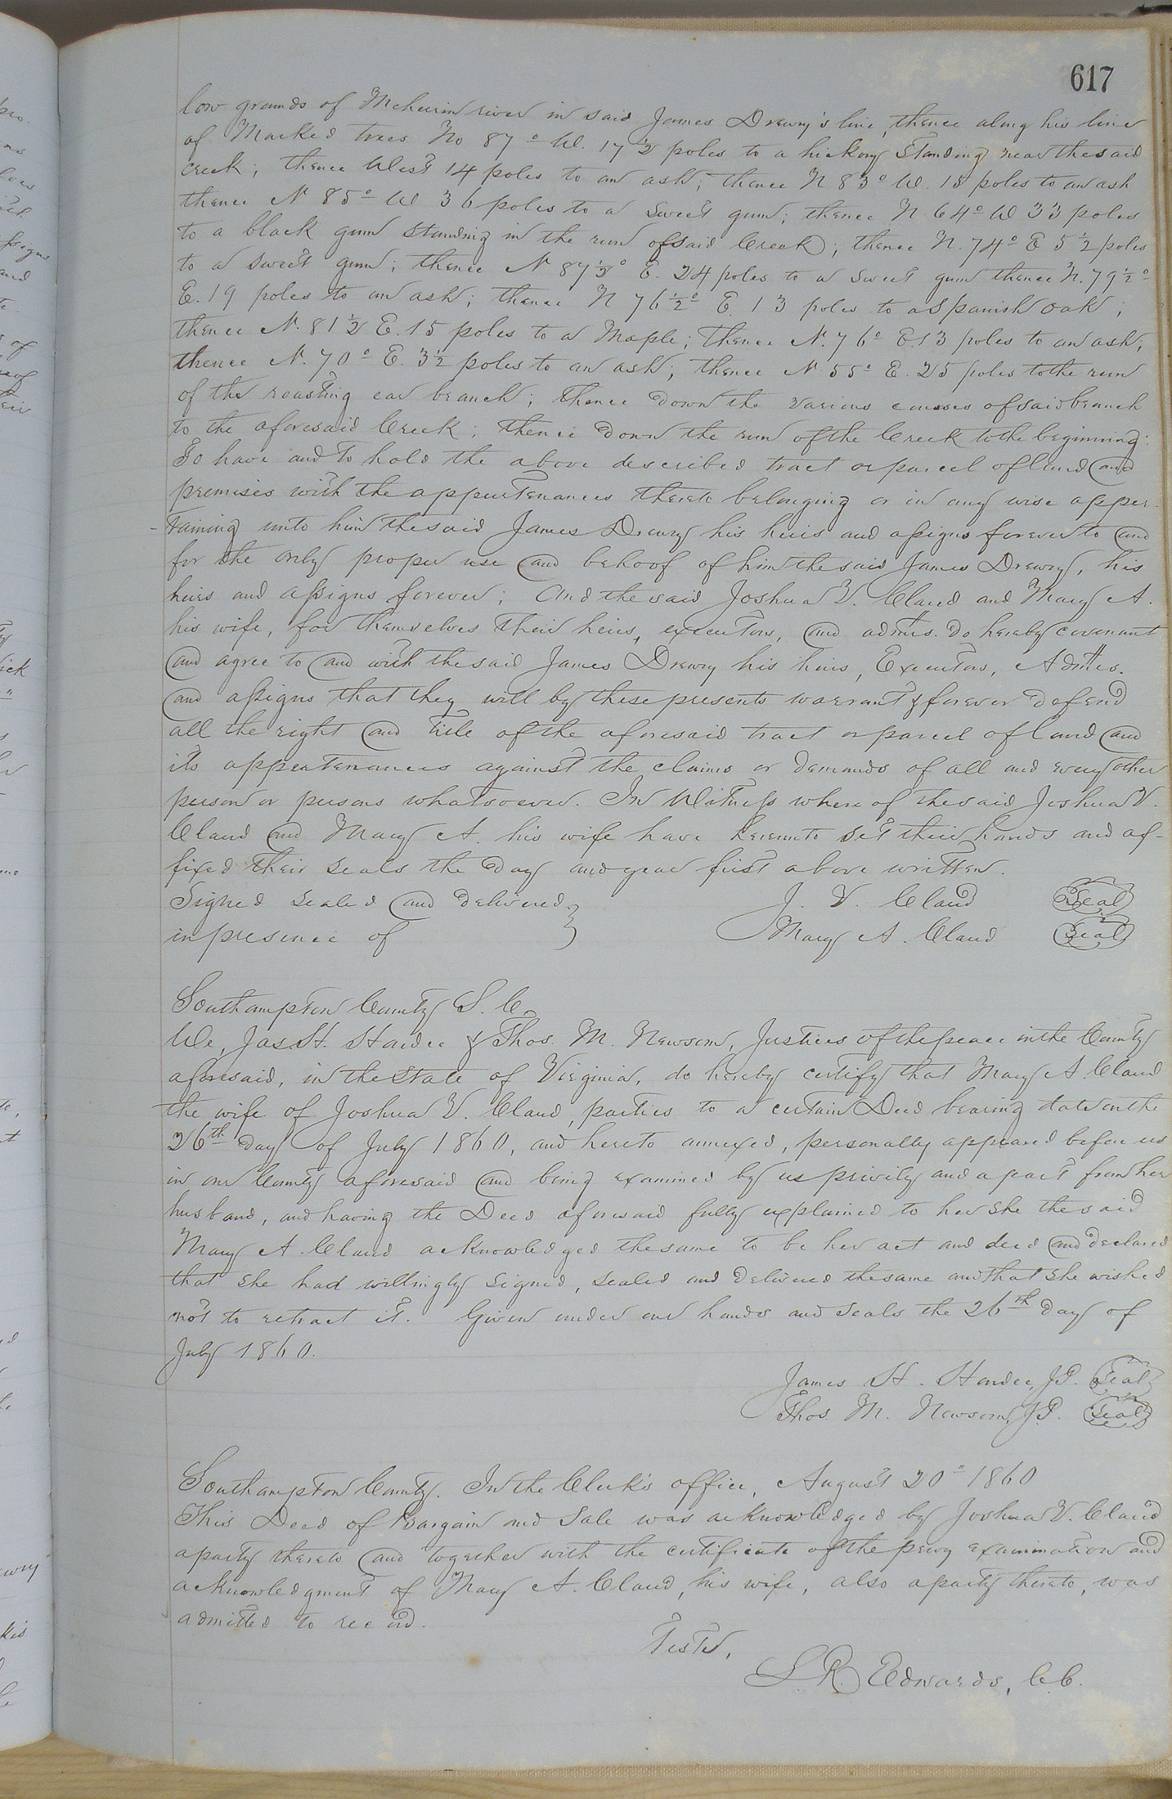 617
low grounds of Meherrin river in said James Drewry's line, thence along his line
of Marked trees No 87° W. 17½ poles to a hickory standing near the said
creek; thence West 14 poles to an ash; thence N 83° W. 18 poles to an ash
thence N 85° W 36 poles to a sweet gum; thence N. 64° W 33 poles
to a black gum standing in the run of said Creek; thence N. 74° E 5½ poles
to a sweet gum; thence N 87½° E. 24 poles to a sweet gum thence N. 79½°
E. 19 poles to an ash; thence N 76½° E. 13 poles to a spanish oak;
thence N. 81½ E. 15 poles to a Maple; thence N. 76° E 13 poles to an ash;
thence N. 70° E. 3½ poles to an ash; thence N 55° E. 25 poles to the run
of the roasting ear branch; thence down the various courses of said branch
to the aforesaid Creek; thence down the run of the Creek to the beginning:
To have and to hold the above described tract or parcel of land and
premises with the appurtenances thereto belonging or in any wise apper
-taining unto him the said James Drewry his heirs and assigns forever to and
for the only proper use and behoof of him the said James Drewry, his
heirs and assigns forever; And the said Joshua V. Claud and Mary A.
his wife, for themselves their heirs, executors, and admrs. do hereby covenant
and agree to and with the said James Drewry his heirs, Executors, Admrs.
and assigns that they will by these presents warrant & forever defend
all the right and title of the aforesaid tract or parcel of land and
its appurtenances against the claims or demands of all and every other
person or persons whatsoever. In Witness where of the said Joshua V.
Claud and Mary A. his wife have hereunto set their hands and af-
fixed their seals the day and year first above written.
Signed sealed and delivered } J. V. Claud Seal
in presence of } Mary A. Claud Seal
Southampton County S. C.
We, Jas. H. Hardee & Thos. M. Newsom, Justices of the peace in the County
aforesaid, in the State of Virginia, do hereby certify that Mary A. Claud
the wife of Joshua V. Claud, parties to a certain Deed bearing date on the
26th day of July 1860, and hereto annexed, personally appeared before us
in our County aforesaid and being examined by us privily and apart from her
husband, and having the Deed aforesaid fully explained to her she the said
Mary A. Claud acknowledged the same to be her act and deed and declared
that she had willingly signed, sealed and delivered the same and that she wished
not to retract it. Given under our hands and seals the 26th day of
July 1860.
James H. Hardee, J.P. Seal
Thos M. Newsom, J.P. Seal
Southampton County. In the Clerk's office, August 20° 1860
This Deed of Bargain and Sale was acknowledged by Joshua V. Claud
a party thereto and together with the certificate of the privy examination and
acknowledgment of Mary A. Claud, his wife, also a party thereto, was
admitted to record.
Teste,
L. R. Edwards, C.C.